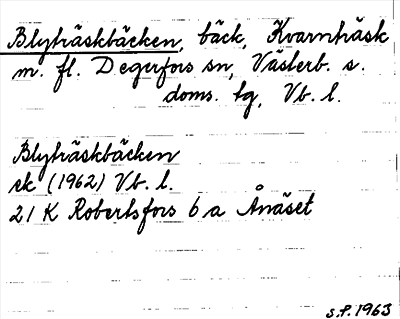 Blyträskbäcken, bäck, Kvarnträsk
m. fl. Degerfors sn, Västerb. s.
doms. tg, Vb. l.
Blyträskbäcken
ek (1962) Vb. l.
21 K Robertsfors 6 a Ånäset
S.P. 1963